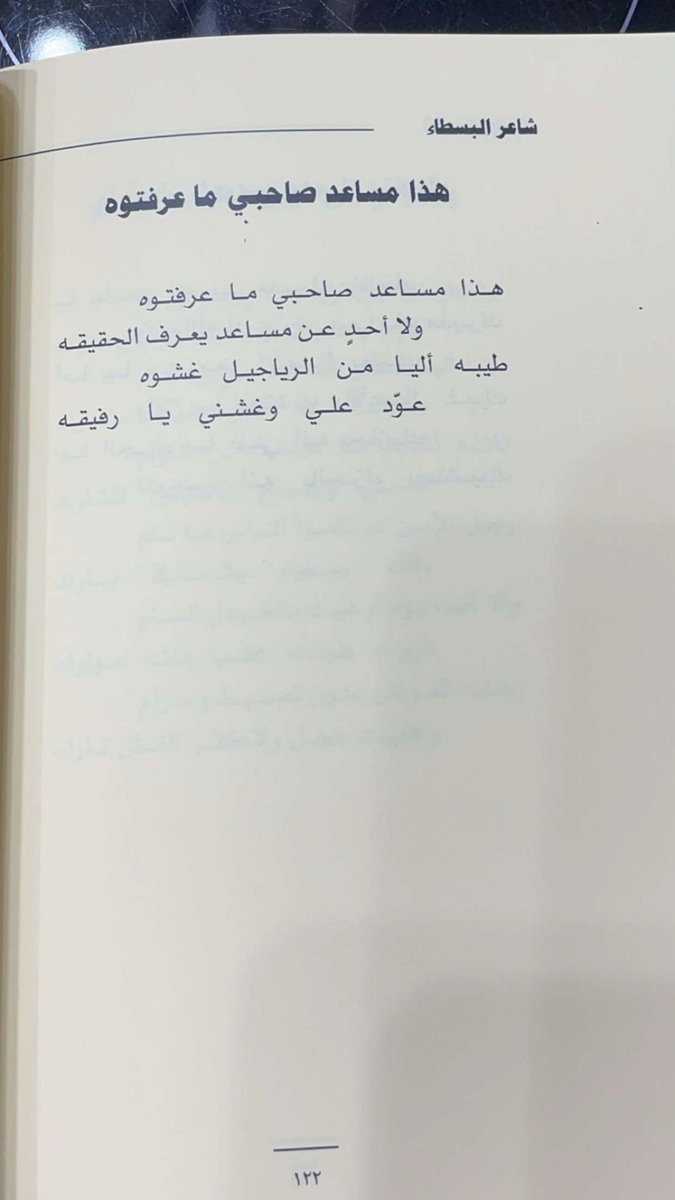 شاعر البسطاء
هذا مساعد صاحبي ما عرفتوه
هذا مساعد صاحبي ما عرفتوه
ولا أحدٍ عن مساعد يعرف الحقيقه
طيبه أليا من الرياجيل غشوه
عوّد علي وغشني يا رفيقه
١٢٢